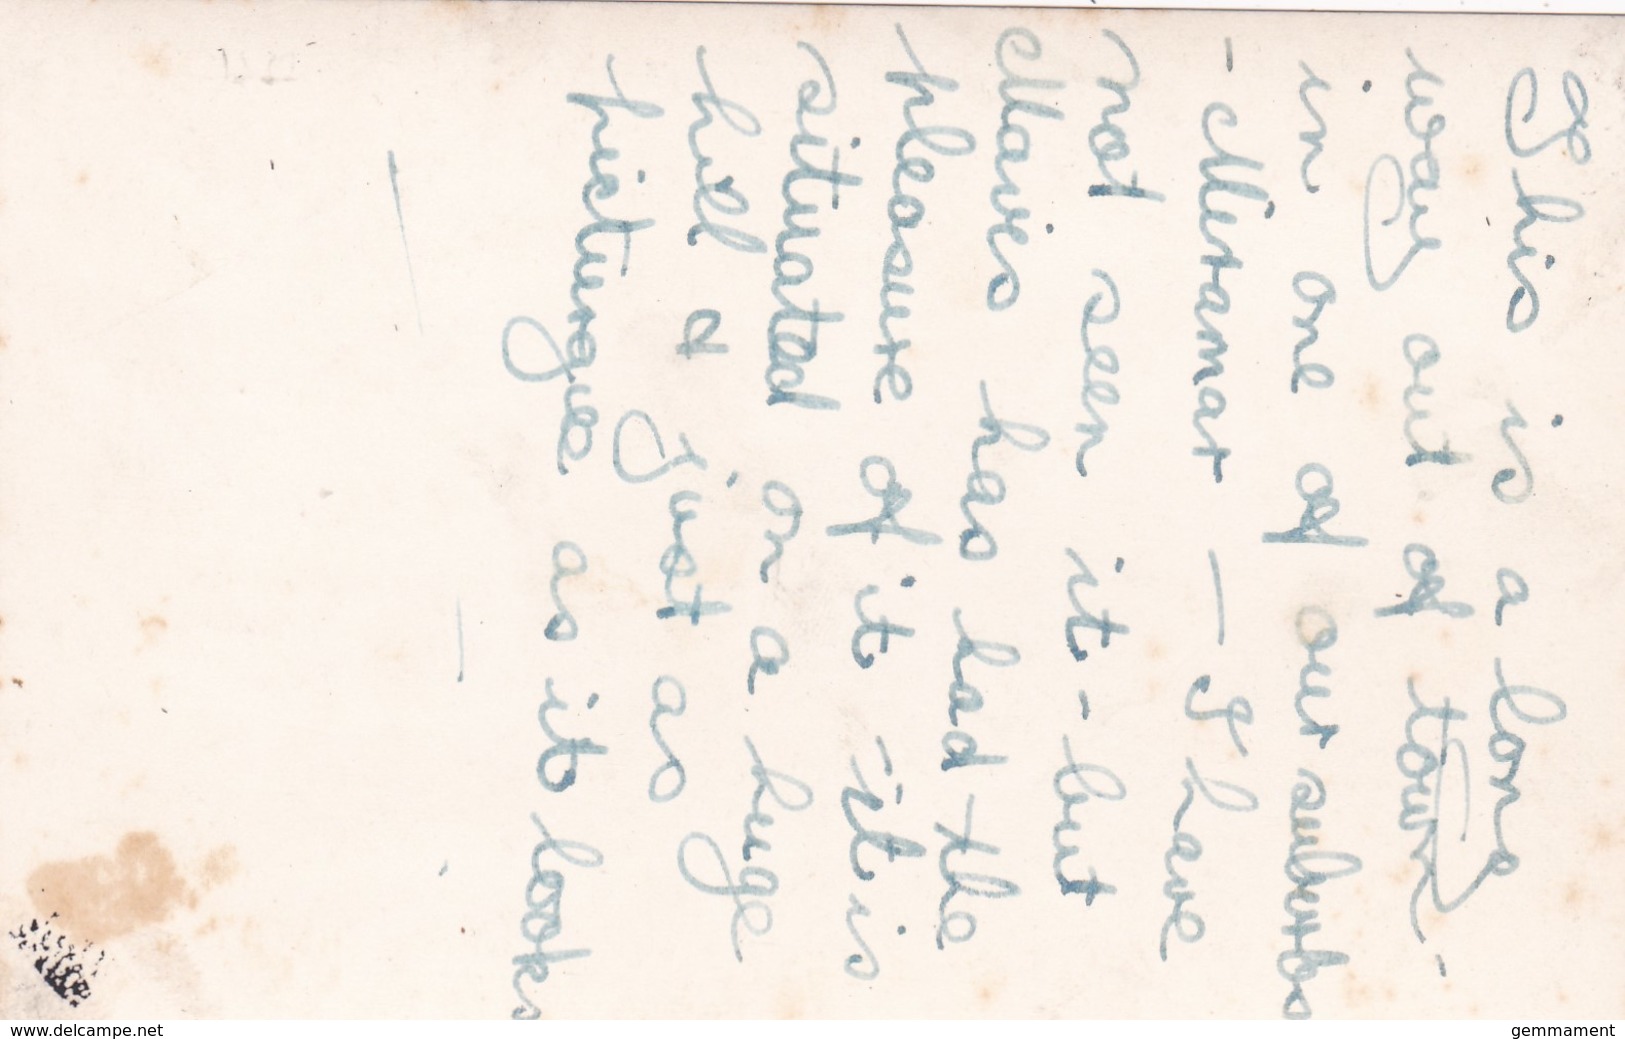 This is a long
way out of town -
in one of our suburbs
- Miramar - I have
not seen it - but
Mavis has had the
pleasure of it it is
situated on a huge
hill & just as
pictursque as it looks
www.delcampe.net
gemmament